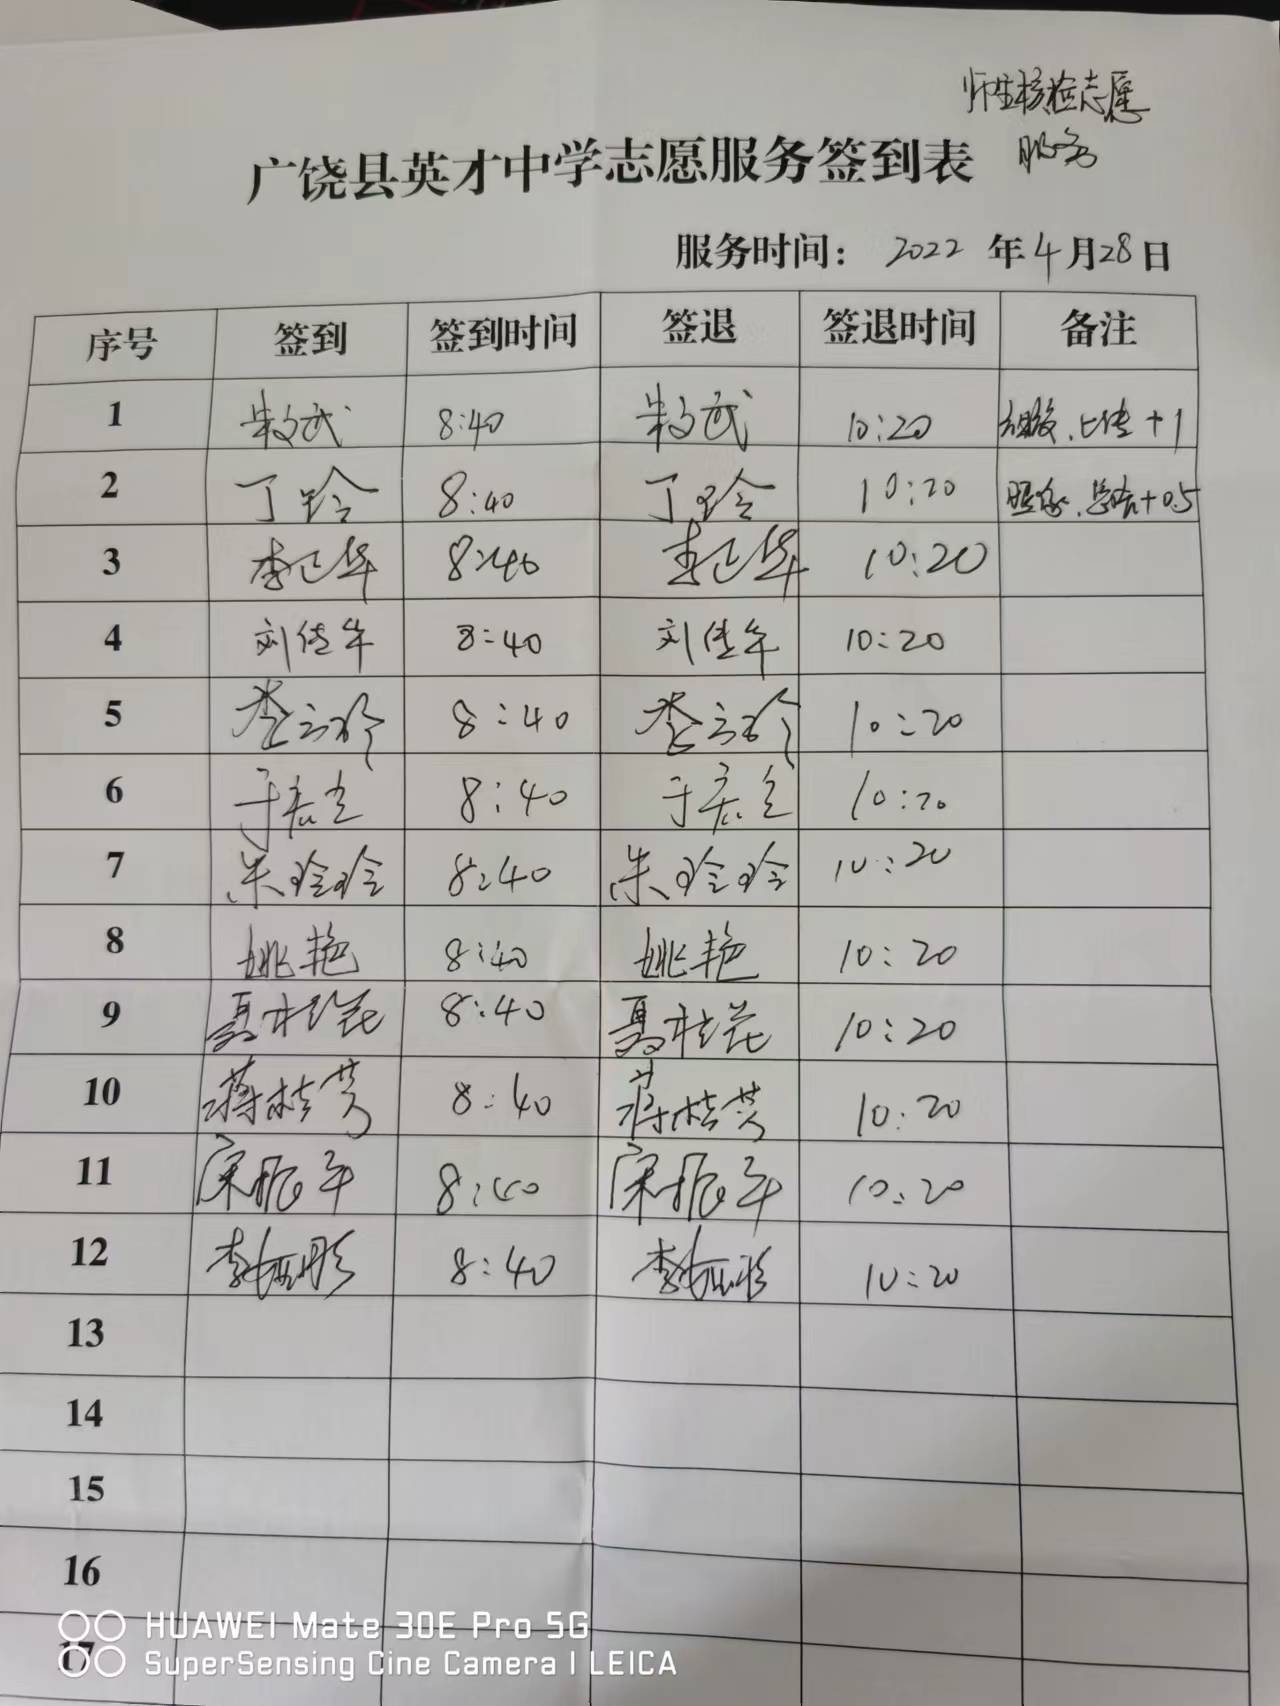 师生核检志愿
服务
广饶县英才中学志愿服务签到表
服务时间： 2022 年 4 月 28 日
序号 签到 签到时间 签退 签退时间 备注
1 朱文武 8:40 朱文武 10:20 上传+1
2 丁玲 8:40 丁玲 10:20 总结+0.5
3 李卫华 8:40 李卫华 10:20
4 刘佳午 8:40 刘佳午 10:20
5 李立玲 8:40 李立玲 10:20
6 于 8:40 于 10:20
7 朱玲玲 8:40 朱玲玲 10:20
8 姚艳 8:40 姚艳 10:20
9 聂桂花 8:40 聂桂花 10:20
10 蒋桂芳 8:40 蒋桂芳 10:20
11 宋振军 8:40 宋振军 10:20
12 李 8:40 李 10:20
13
14
15
16
17
HUAWEI Mate 30E Pro 5G
SuperSensing Cine Camera | LEICA